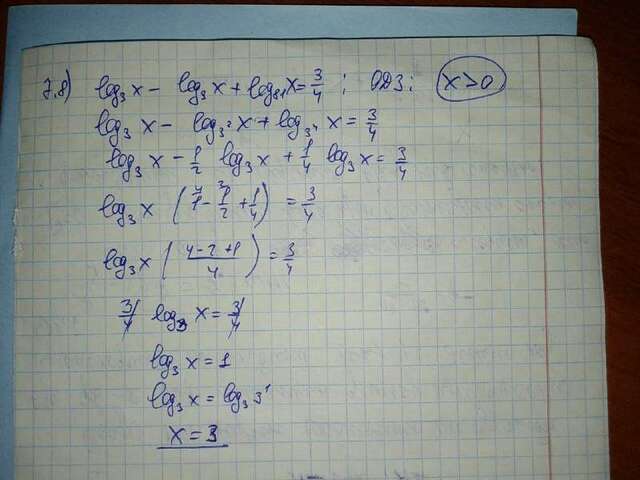 7.8) log₃ x - log₃ x + log₈₁ x = 3/4 ; ОДЗ: x > 0
log₃ x - log₃² x + log₃⁴ x = 3/4
log₃ x - 1/2 log₃ x + 1/4 log₃ x = 3/4
log₃ x (1 - 1/2 + 1/4) = 3/4
log₃ x ((4 - 2 + 1)/4) = 3/4
3/4 log₃ x = 3/4
log₃ x = 1
log₃ x = log₃ 3¹
x = 3